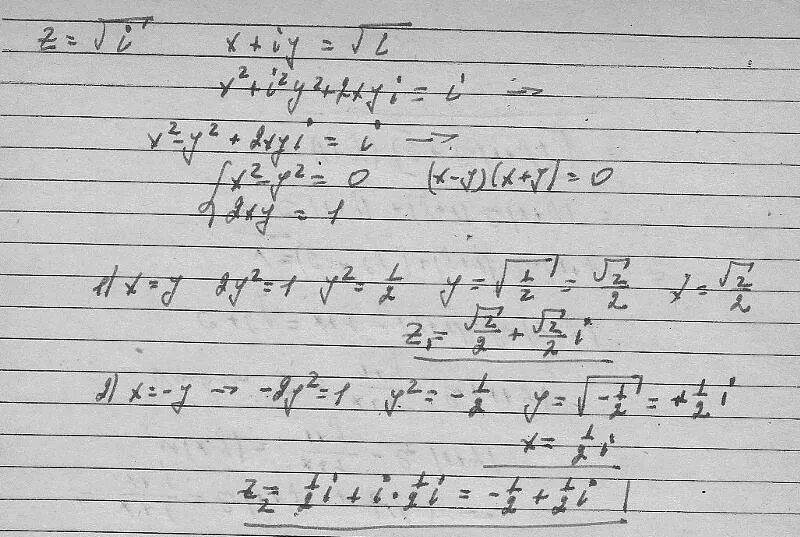 z = √i   x + iy = √i
x² + i²y² + 2xyi = i →
x² - y² + 2xyi = i →
{ x² - y² = 0   (x-y)(x+y) = 0
2xy = 1
1) x = y   2y² = 1   y² = 1/2   y = √(1/2) = √2/2   x = √2/2
z₁ = √2/2 + √2/2 i
2) x = -y → -2y² = 1   y² = -1/2   y = √(-1/2) = +1/2 i
x = 1/2 i
z₂ = 1/2 i + i · 1/2 i = -1/2 + 1/2 i